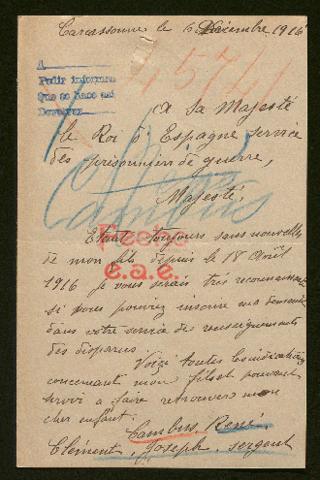 Carcassonne le 6 Décembre 1916
A
Pedir informes
Que se hace así
45711
a Sa Majesté
le Roi d'Espagne service
des prisonniers de guerre,
Majesté,
Cambus
Etant toujours sans nouvelles
de mon fils depuis le 18 Août
1916 je vous serais très reconnaissante
si vous pouviez inscrire ma demande
dans votre service des renseignements
des disparus.
Voici toutes les indications
concernant mon fils et pouvant
servir a faire retrouver mon
cher enfant.
Cambus, René,
Clément, Joseph, sergent
e.a.e.